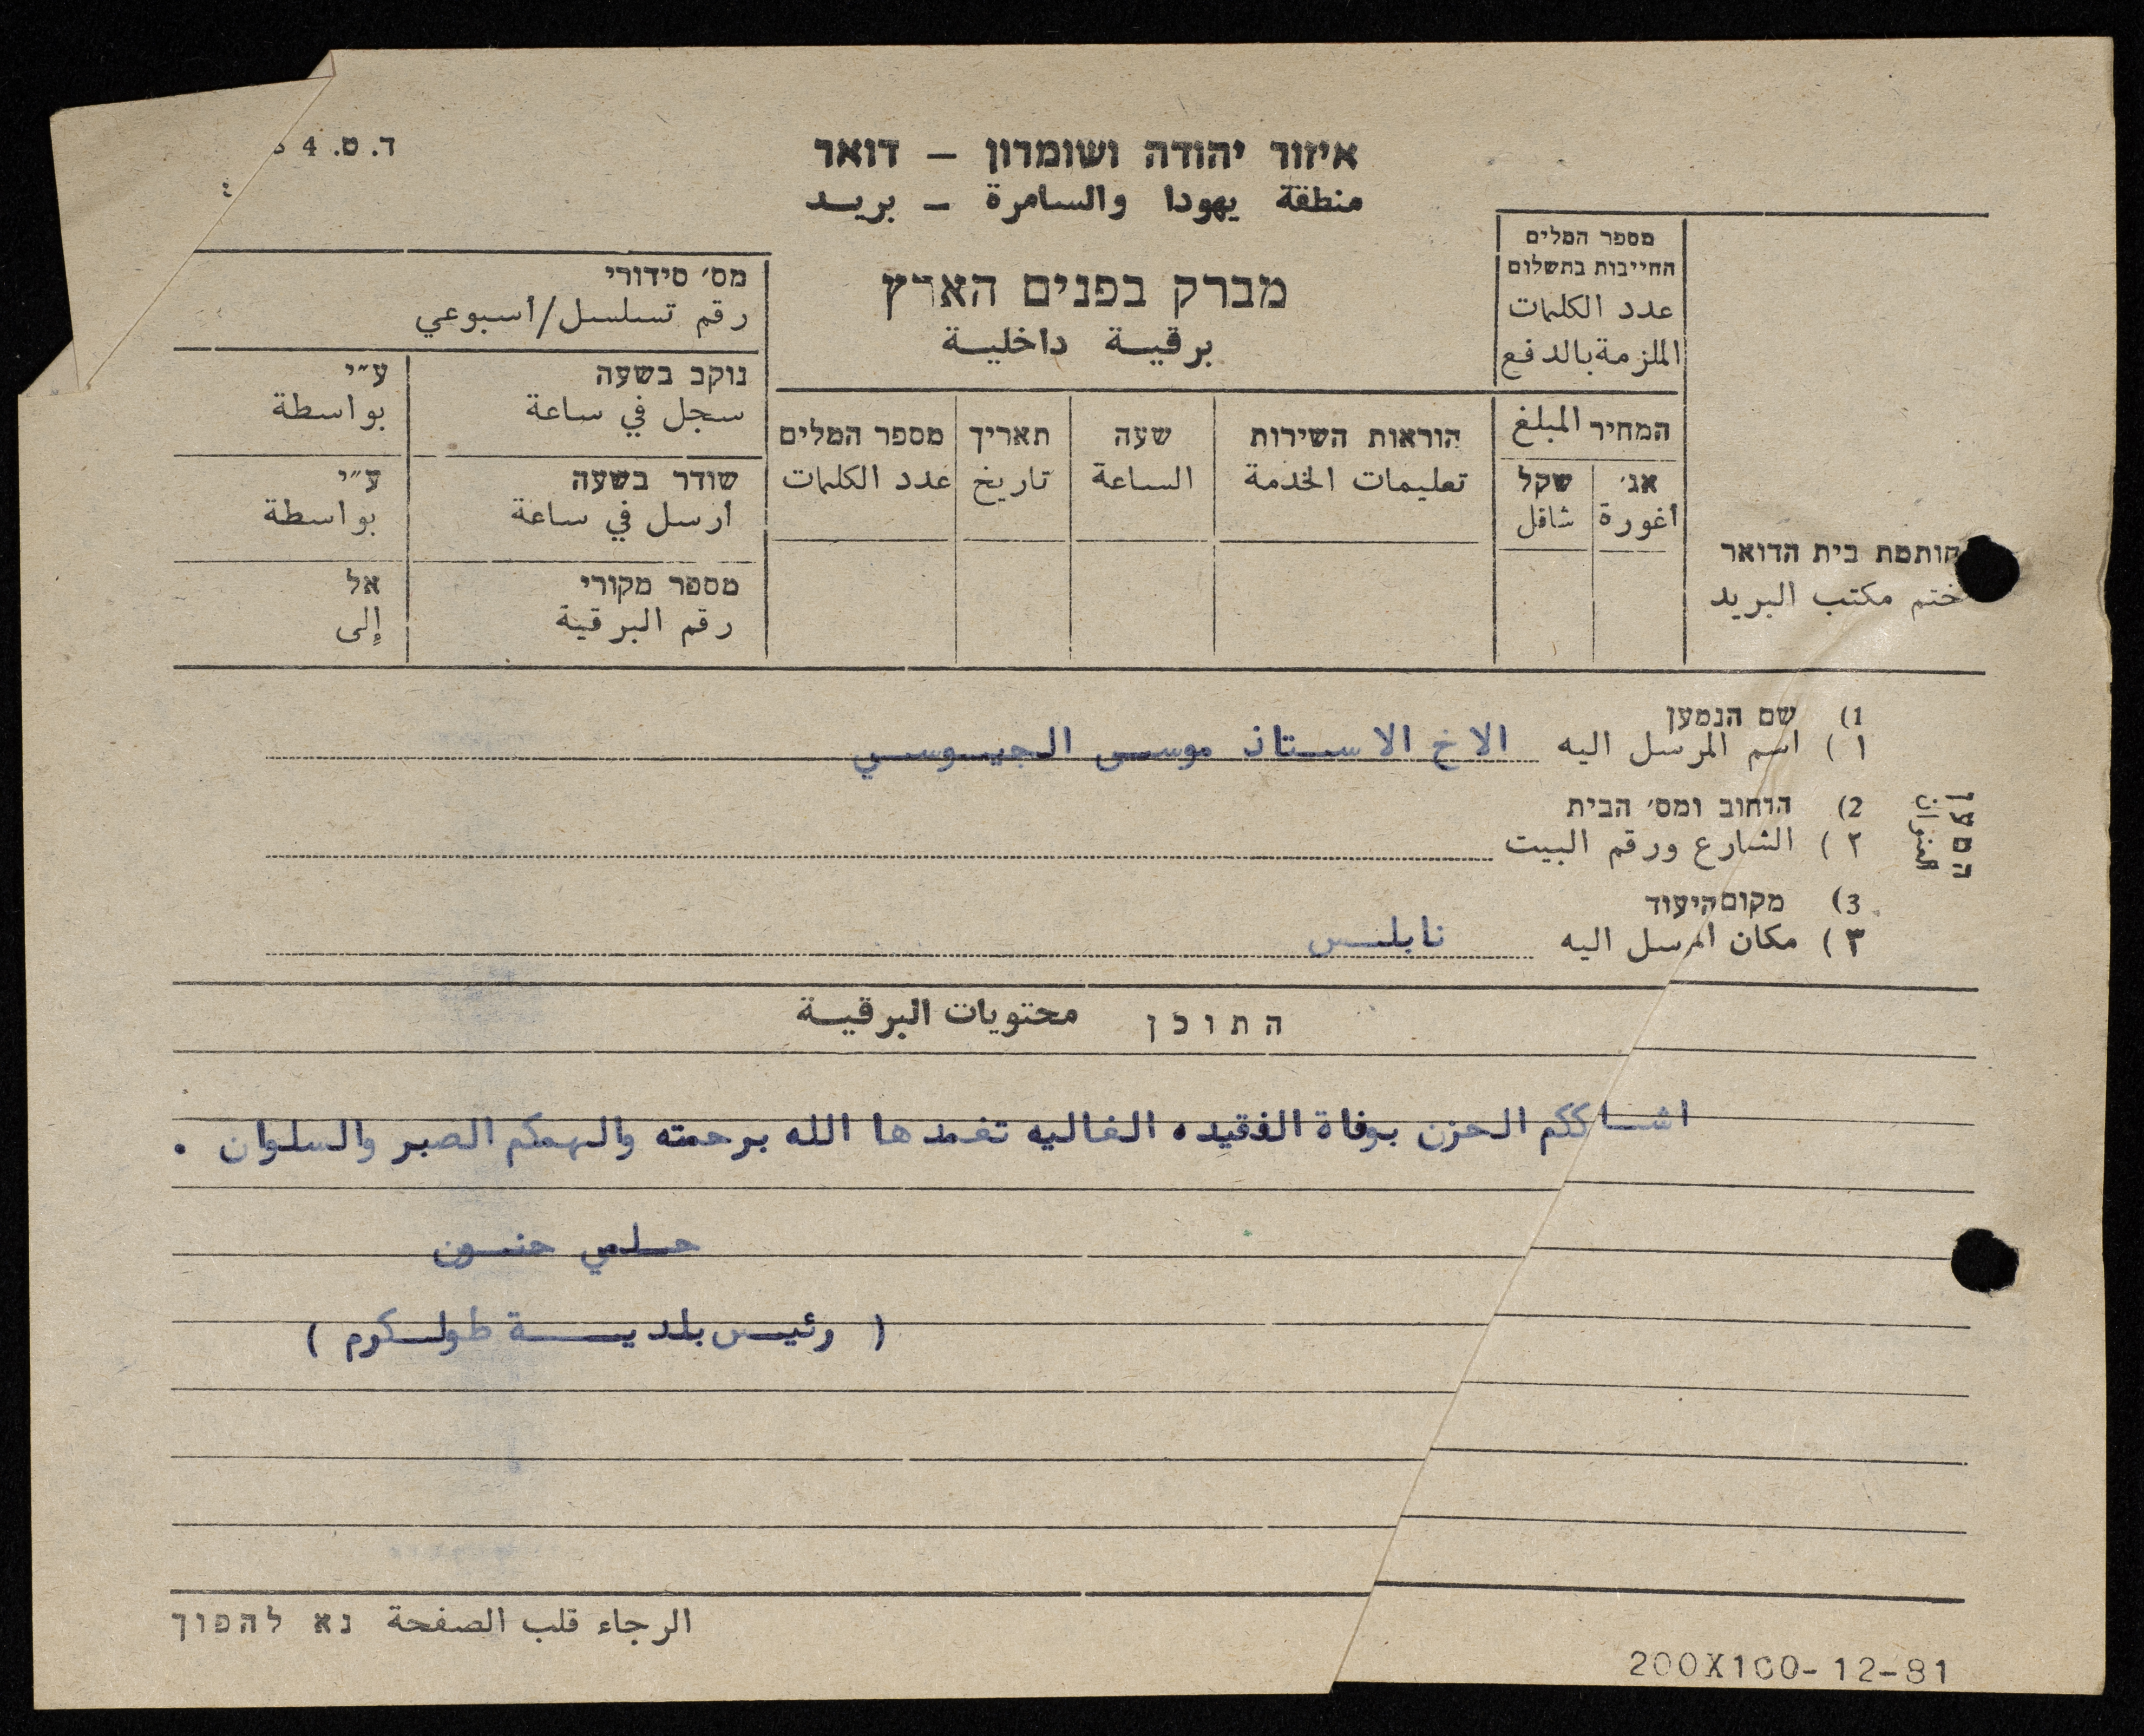 ד. ט. 4
איזור יהודה ושומרון – דואר
منطقة يهودا والسامرة – بريد
מברק בפנים הארץ
برقية داخلية
מספר המלים
החייבות בתשלום
عدد الكلمات
الملزمة بالدفع
המחיר المبلغ
אג׳ שקל
أغورة شاقل
חותמת בית הדואר
ختم مكتب البريد
הוראות השירות
تعليمات الخدمة
שעה
الساعة
תאריך
تاريخ
מספר המלים
عدد الكلمات
מס׳ סידורי
رقم تسلسل/أسبوعي
נוקב בשעה ע״י
سجل في ساعة بواسطة
שודר בשעה ע״י
أرسل في ساعة بواسطة
מספר מקורי אל
رقم البرقية إلى
המען
العنوان
1) שם הנמען
١) اسم المرسل اليه الاخ الاستاذ موسى الجيوسي
2) הרחוב ומס׳ הבית
٢) الشارع ورقم البيت
3) מקום היעוד
٣) مكان المرسل اليه نابلس
התוכן محتويات البرقية
الحزن بوفاة الفقيده الغاليه تغمدها الله برحمته والهمكم الصبر والسلوان .
حلمي حنون
( رئيس بلدية طولكرم )
الرجاء قلب الصفحة נא להפוך
200X100-12-81